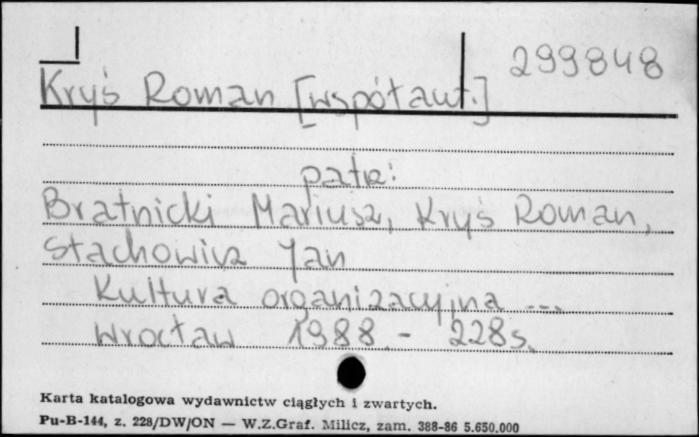 299848
Kryś Roman [współaut.]
patrz:
Bratnicki Mariusz, Kryś Roman,
Stachowicz Jan
Kultura organizacyjna ...
Wrocław 1988 - 228s.
Karta katalogowa wydawnictw ciągłych i zwartych.
Pu-B-144, z. 228/DW/ON — W.Z.Graf. Milicz, zam. 388-86 5.650.000